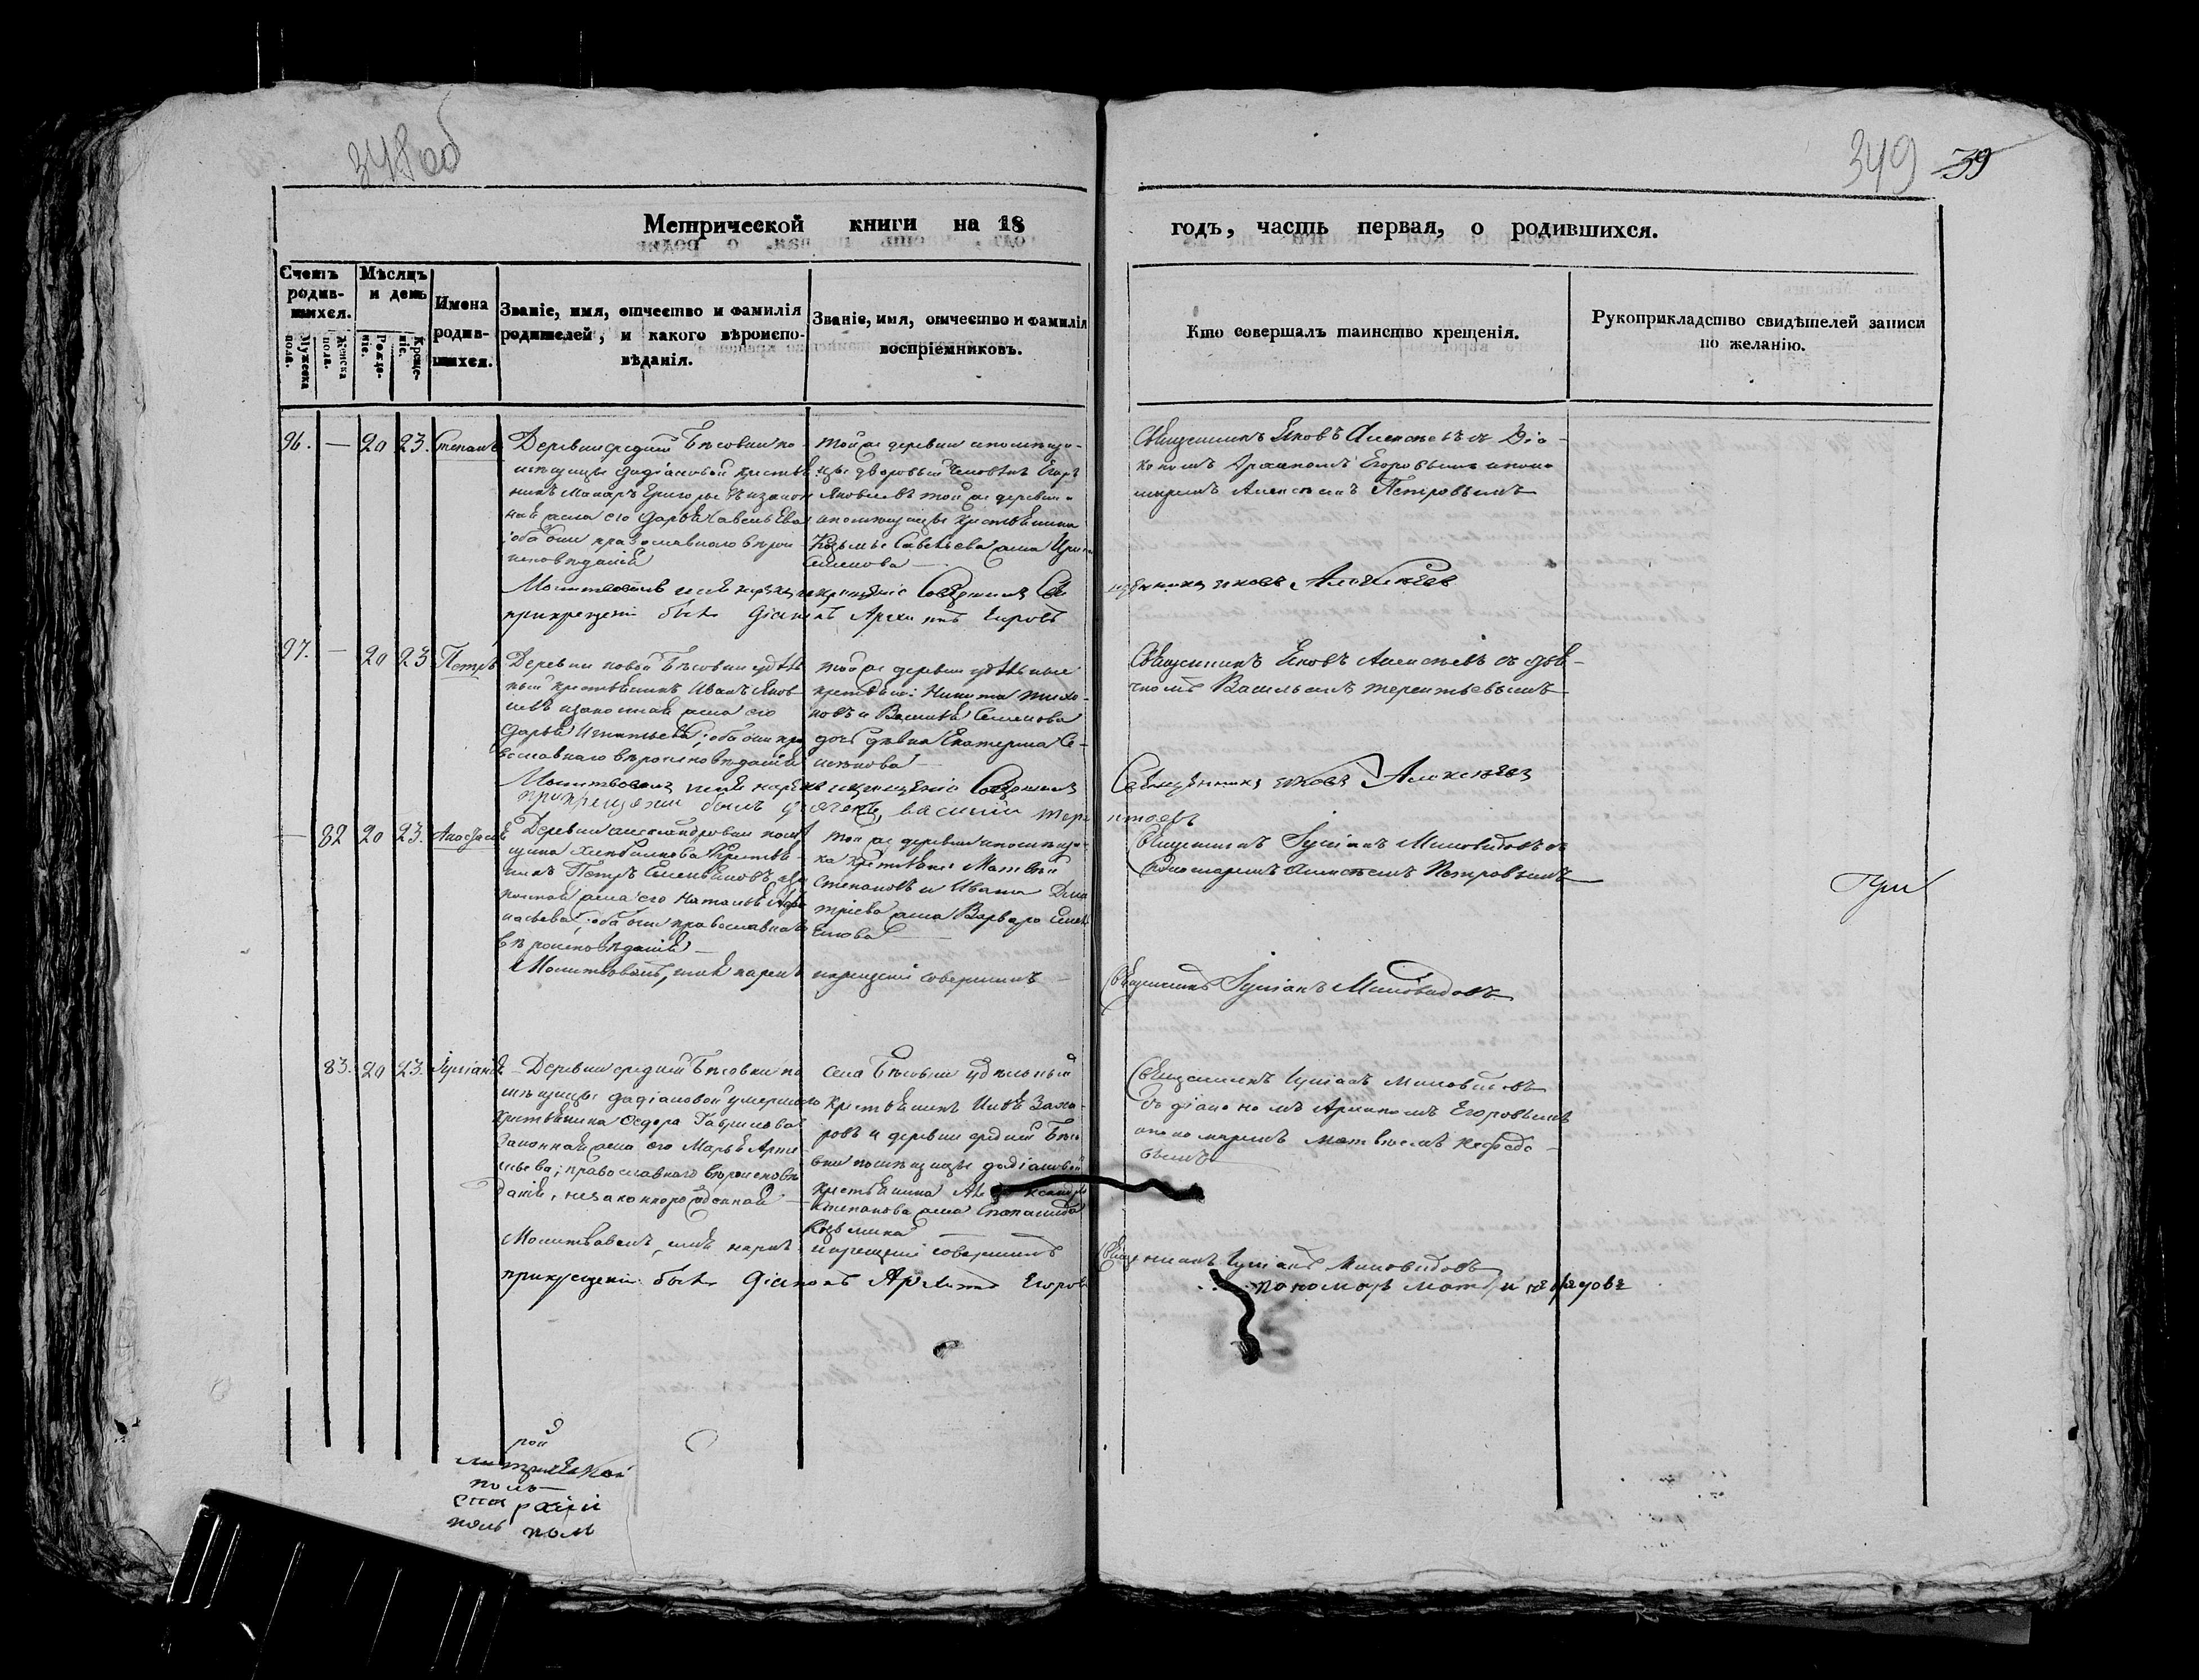 348 об
349 39
Метрической книги на 18
годъ, часть первая, о родившихся.
Счетъ родив-шихся.
Мужеска пола.
Женска пола.
Мѣсяцъ и день
Рожде-нiе.
Креще-нiе.
Имена родив-шихся.
Званiе, имя, отчество и фамилiя
родителей, и какого вѣроиспо-
вѣданiя.
Званiе, имя, отчество и фамилiя
воспрiемниковъ.
Кто совершалъ таинство крещенiя.
Рукоприкладство свидѣтелей записи
по желанiю.
96. — 20 23. Степанъ
Деревни средней Бѣсовки по-
мѣщицы Дадiановой крестья
нинъ Макаръ Григорьевъ изакон
ная жена его Дарья Савельева
оба они православнаго вѣрои
исповѣданiя
Той же деревни и помѣщи-
цы дворовый человѣкъ Егоръ
Яковлевъ той же деревни и
и помѣщицы крестьянина
Козьмы Савельева жена
Семенова
Священникъ Яковъ Алексѣевъ съ Дiа-
кономъ Архипомъ Егоровымъ и поно-
маремъ Алексѣемъ Петровымъ
Молитвовалъ имя нарекъ и крещенiе совершилъ Свя
щенникъ Яковъ Алексѣев
при крещенiи былъ дiаконъ Архипъ Егоровъ
97. — 20 23 Петръ
Деревни новой Бѣсовки удѣль
ный крестьянинъ Иванъ Яков
левъ изаконная жена его
Дарья Игнатьева; оба они пра
вославнаго вѣроисповѣданiя
Той же деревни удѣльные
крестьяне: Никита Тихо-
новъ и Василья Семенова
дочь дѣвка Екатерина Се-
менова
Священникъ Яковъ Алексѣевъ съ дья-
чкомъ Васильемъ Терентьевымъ
Молитвовалъ имя нарекъ и крещенiе Совершилъ
Священникъ Яковъ Алексѣевъ
при крещенiи былъ дьячекъ Василiй Тере
нтьевъ
— 82 20 23. Анастасiя
Деревни Александровки помѣ
щика крестья-
нинъ Петръ Емельяновъ, за
конная жена его Наталья Афа
насьева; оба они православнаго
вѣроисповѣданiя —
Той же деревни и помѣщи-
ка крестьяне Матвей
Степановъ и Ивана Дми
трiева жена Варвара Емель
янова —
Священникъ Iулiанъ Миловидовъ съ
Пономаремъ Алексѣемъ Петровымъ
Молитвовалъ, имя нарекъ и крещенiе совершилъ
Священникъ Iулiанъ Миловидовъ
83. 20 23. Iулiанiя
Деревни средней Бѣсовки по
мѣщицы Дадiановой умершаго
крестьянина Федора Гаврилова
законная жена его Марья Арте
мьева; православнаго вѣроисповѣ
данiя, незаконнорожденная —
Села Бѣсовки удѣльный
крестьянинъ Илья Заха-
ровъ и деревни средней Бѣсо
вки помѣщицы Дадiановой
крестьянина Александра
Степанова жена Степанида
Козьмина
Священникъ Iулiанъ Миловидовъ
съ дiакономъ Архипомъ Егоровымъ
и пономаремъ Матвѣемъ Нефедо-
вымъ
Молитвовалъ, имя нарекъ и крещенiе совершилъ
Священникъ Iулiанъ Миловидовъ
при крещенiи былъ Дiаконъ Архипъ Егоровъ
пономарь Матвей Нефедовъ
рой